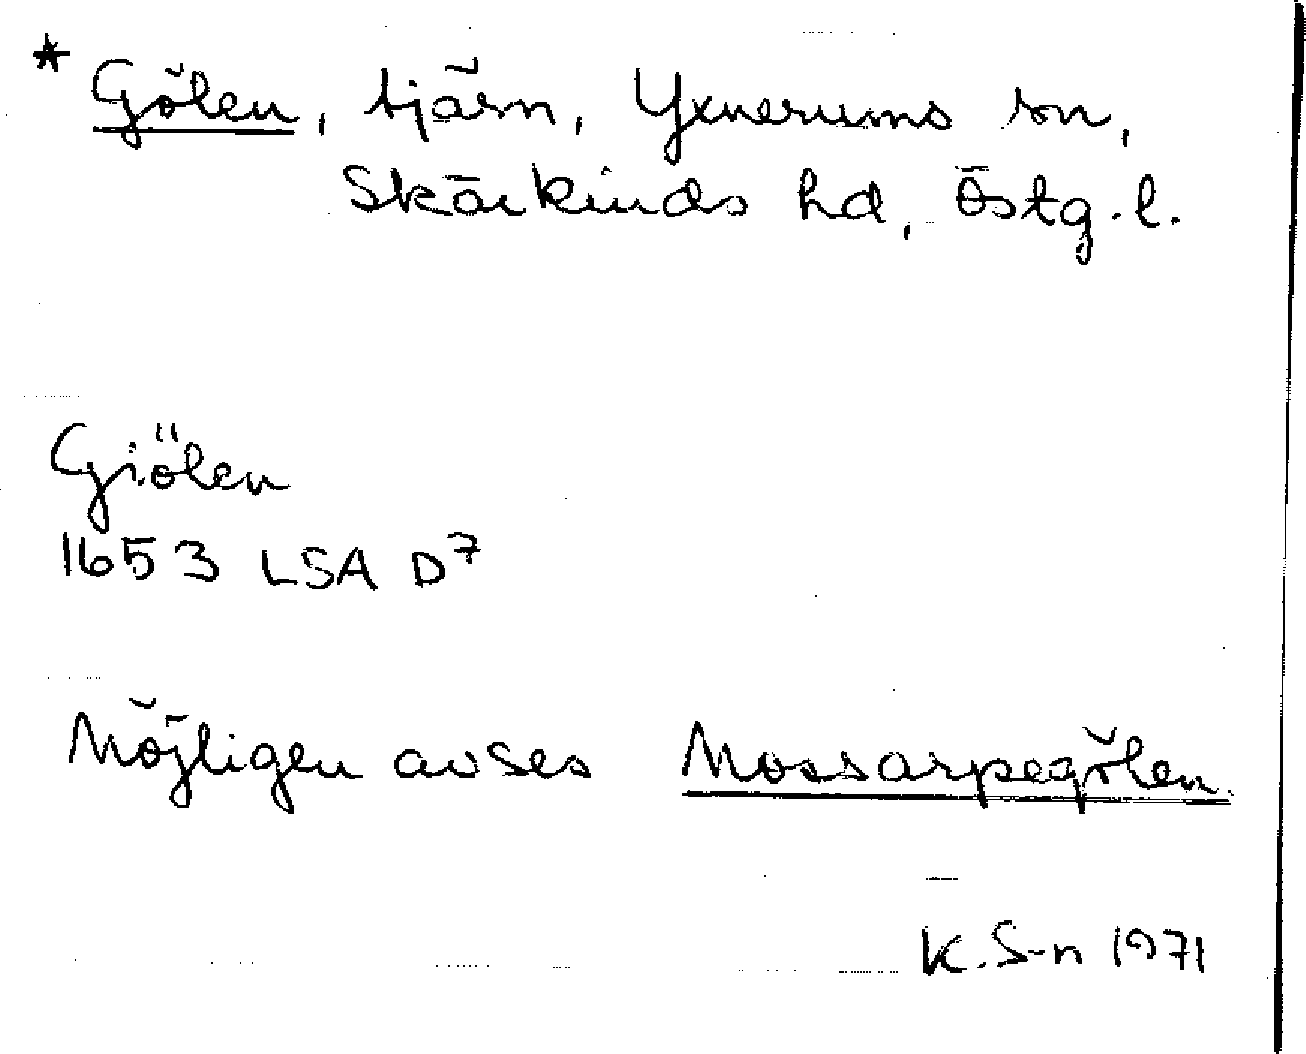 * Gölen, tjärn, Yxnerums sn,
Skärkinds hd, Östg. l.
Giölen
1653 LSA D7
Möjligen avses Mossarpegölen.
K. S-n 1971